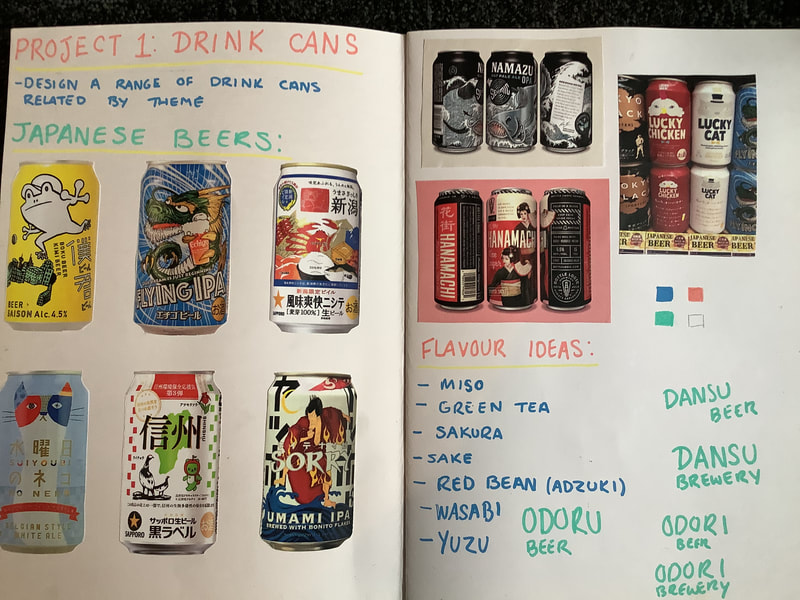 PROJECT 1: DRINK CANS
-DESIGN A RANGE OF DRINK CANS
RELATED BY THEME
JAPANESE BEERS:
BEER
SAISON Alc. 4.5%
FLYING IPA
エチゴビール
お酒
新潟
風味爽快ニシテ
SAPPORO
生ビール
水曜日
SUIYOUBI
のネコ
NO NEKO
BELGIAN STYLE
WHITE ALE
信州
サッポロ生ビール
黒ラベル
SAPPORO
SORRY
UMAMI IPA
BREWED WITH BONITO FLAKES
NAMAZU
花街
HANAMACHI
HANAMACHI
LUCKY
CHICKEN
LUCKY
CAT
LUCKY
CHICKEN
LUCKY
CAT
JAPANESE
BEER
FLAVOUR IDEAS:
- MISO
- GREEN TEA
- SAKURA
- SAKE
- RED BEAN (ADZUKI)
- WASABI
- YUZU
ODORU
BEER
DANSU
BEER
DANSU
BREWERY
ODORI
BEER
ODORI
BREWERY